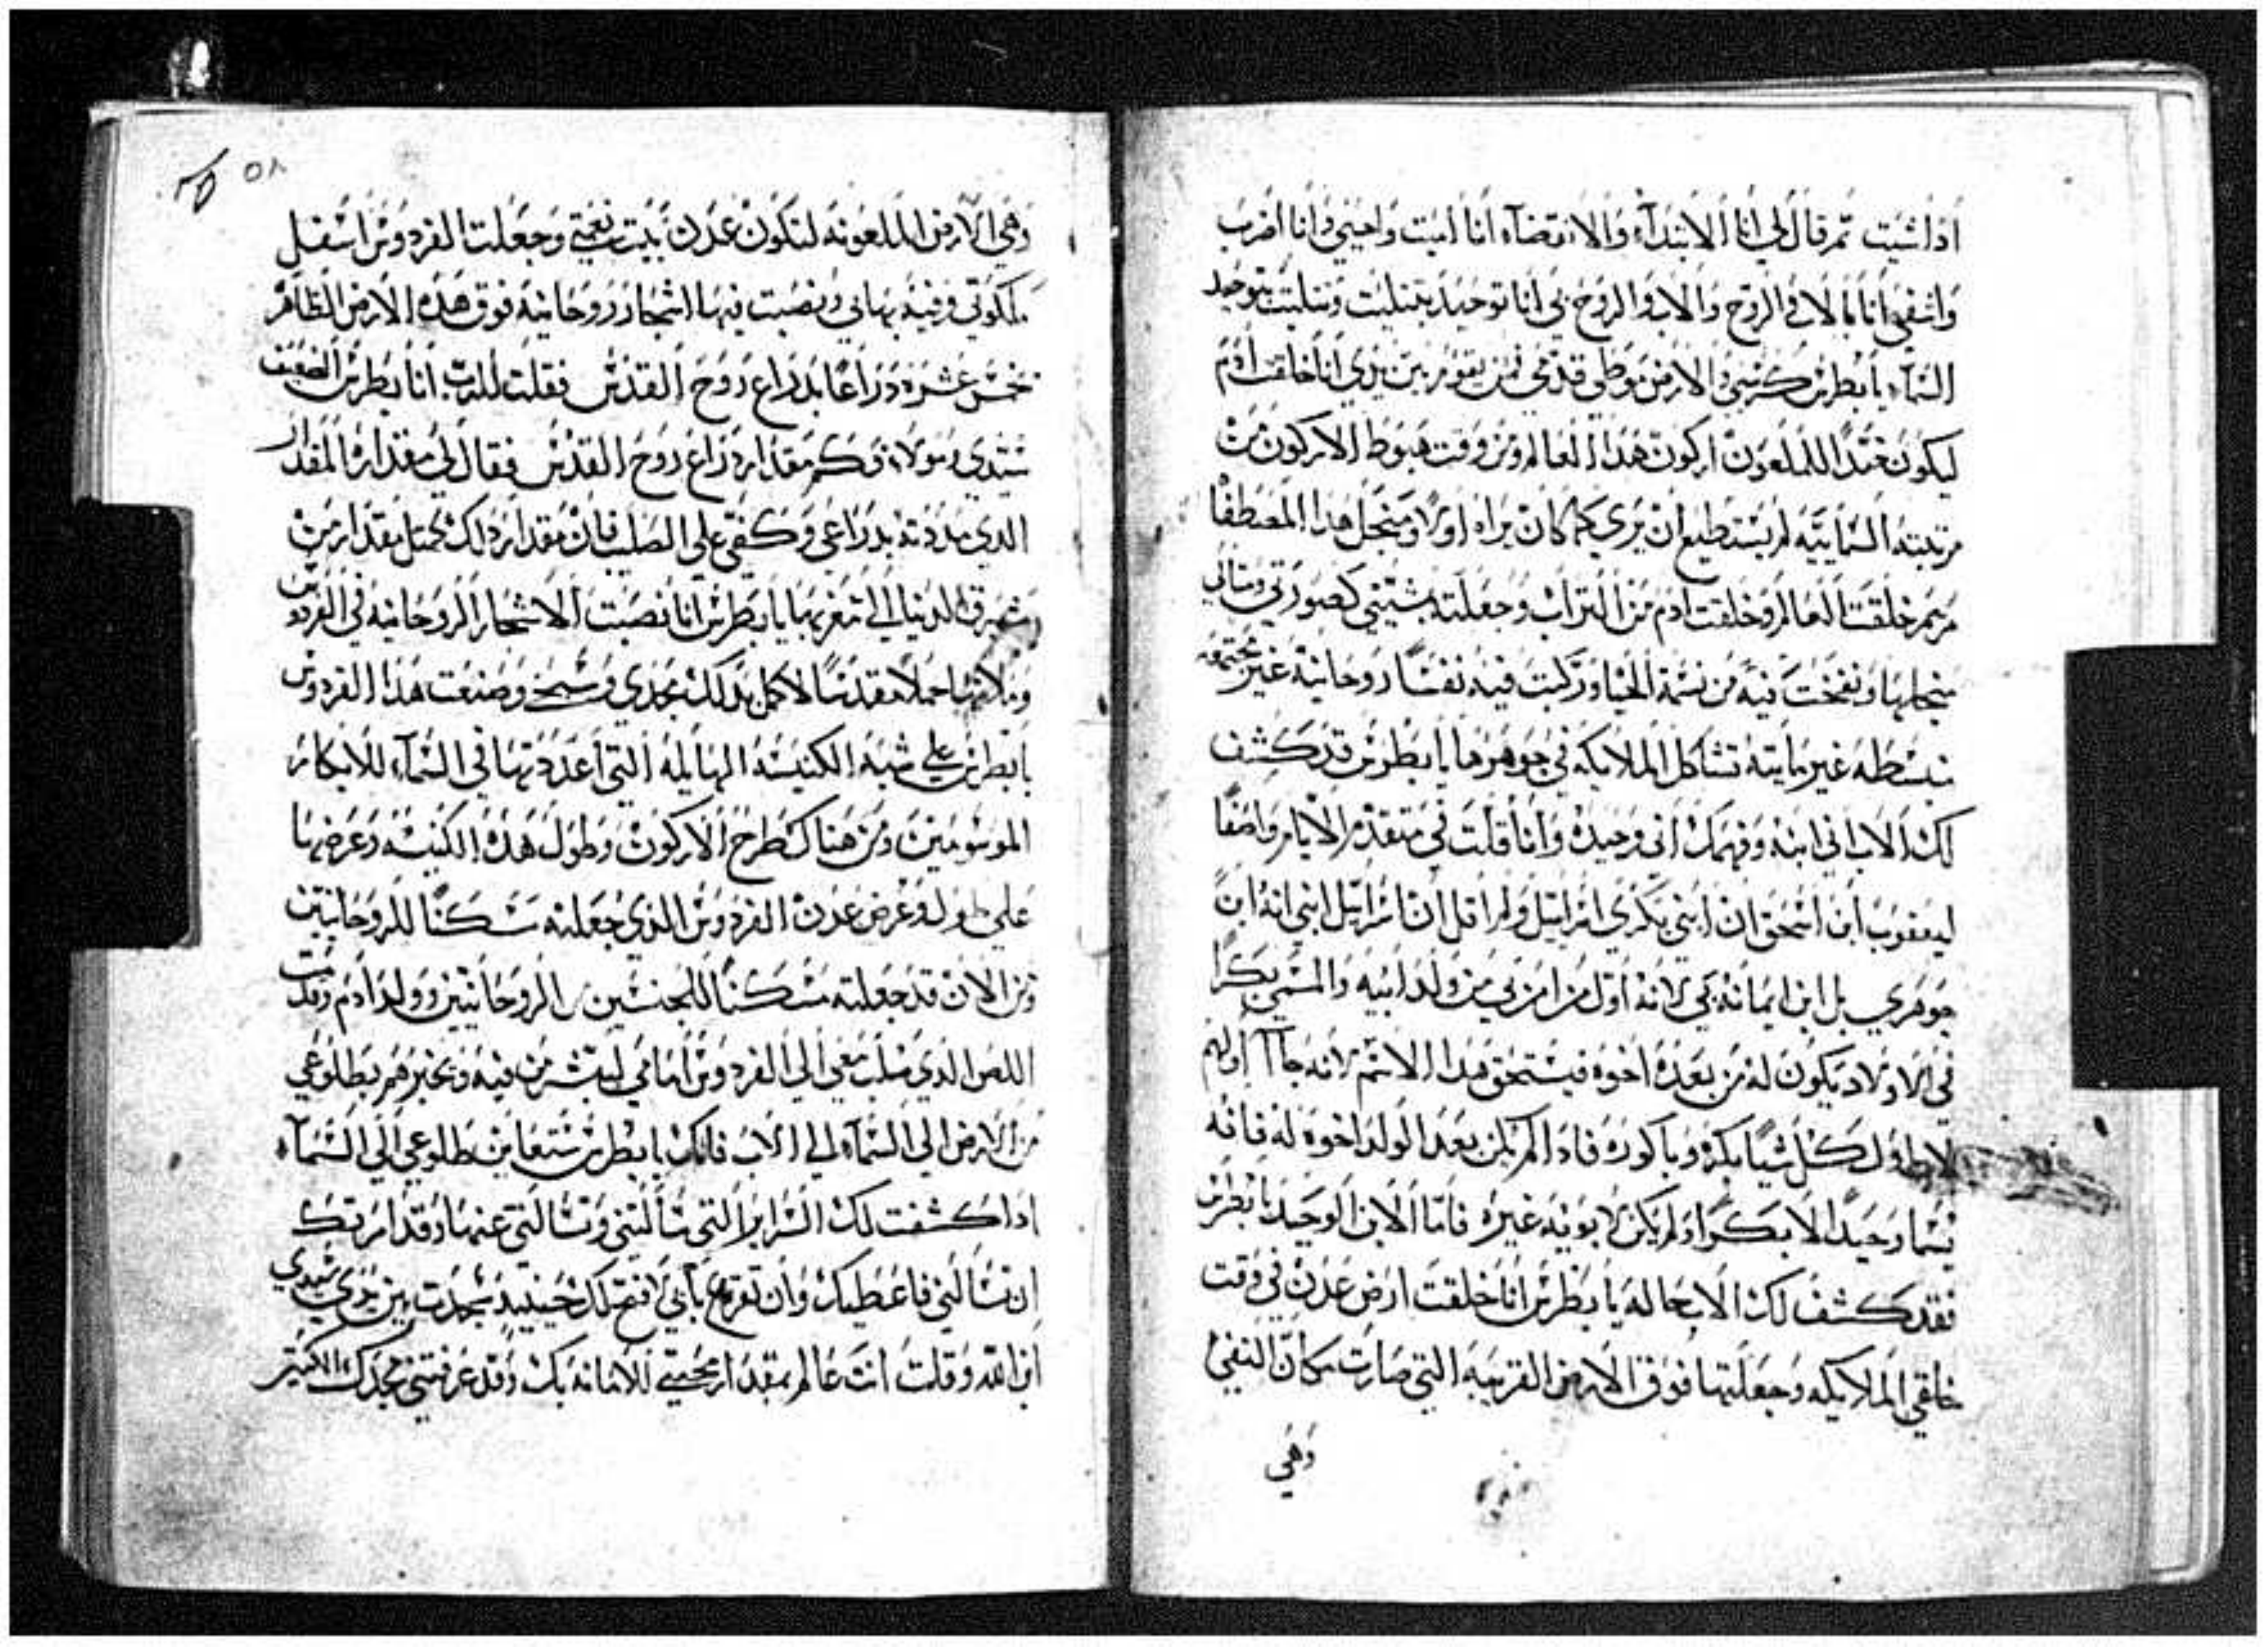 اذا شيت ثم قال لي انا الابتداء والانقضاء انا اميت واحيي وانا اضرب
واشفي انا بالاب والروح والاب والروح بي انا توحيد بتثليت وتتليت بتوحيد
السماء يا بطرس كرسي والارض موطي قدمي فمن يقوم بين يدي انا خلقت ادم
ليكون ضدا للملعون اركون هدا العالم ومن وقت هبوط الاركون من
مرتبته السماييه لم يستطيع ان يري كما كان يراه اولا ومنجل هدا المصطفا
مريم خلقت العالم وخلقت ادم من التراب وجعلته بشبهي كصورتي ومثالي
منجلها ونفخت فيه من نسمة الحيا وركبت فيه نفسا روحانية غير مجتمعه
بسطه غير مايته تشاكل الملايكه في جوهرها يا بطرس قد كشف
لك الاب اني ابنه وفهمك اني وحيده وانا قلت في متقدم الايام واصفا
ليعقوب ابن اسحق ان ابني بكري اسراييل ولم اقل ان اسراييل ابني انه ابن
جوهري بل ابن ايمانه بي لانه اول من امن بي من ولد ابيه والمسمى بكرا
في الاولاد يكون له من بعده اخوه فيستحق هدا الاسم لانه جا اولهم
لاول كل شيا بكره وباكوره فادا لم يكن بعد الولد اخوه له فانه
يسما وحيدا لا بكرا اد لم يكن لابويه غيره فاما الابن الوحيد يا بطرس
فقد كشف لك الاب حاله يا بطرس انا خلقت ارض عدن في وقت
خلقي الملايكه وجعلتها فوق الارض القريبه التي صارت مكان النفي
وهي
٥٨
وهي الارض الملعونه لتكون عدن بيت نعمتي وجعلت الفردوس اسفل
ملكوتي وفيه بهاي ونصبت فيها اشجار روحانيه فوق هده الارض الظاهر
خمس عشره دراعا بدراع روح القدس فقلت للرب انا بطرس الضعيف
سيدي ومولاي وكم مقدار دراع روح القدس فقال لي مقداره المقدار
الدي مددته بدراعي وكفي علي الصليب فان مقدار دلك يحتمل مقدار من
مشرق الدنيا الي مغربها يا بطرس انا نصبت الاشجار الروحانيه في الفردوس
وملاتها حملا مقدسا لاكمل بدلك مجدي وصنعت هذا الفردوس
يا بطرس علي شبه الكنيسه الهايله التي اعددتها في السماء للابكار
الموسومين ومن هناك طرح الاركون وطول هده الكنيسه وعرضها
علي طول وعرض عدن الفردوس الذي جعلته مسكنا للروحانيين
ومن الان قد جعلته مسكنا للجنسين الروحانيين وولد ادم وقدمت
اللص الذي صلب معي الي الفردوس امامي ليبشر من فيه ويخبرهم بطلوعي
من الارض الي السماء الي الاب فانك يا بطرس ستعاين طلوعي الي السماء
ادا كشفت لك السراير التي سالتني وتسالني عنها وقد امرتك
ان تسالني فاعطيك وان تقرع بابي لافتح لك حينيد سجدت بين يدي سيدي
ابن الله وقلت انت عالم بمقدار محبتي للامانه بك وقد عرفتني مجدك الكبير